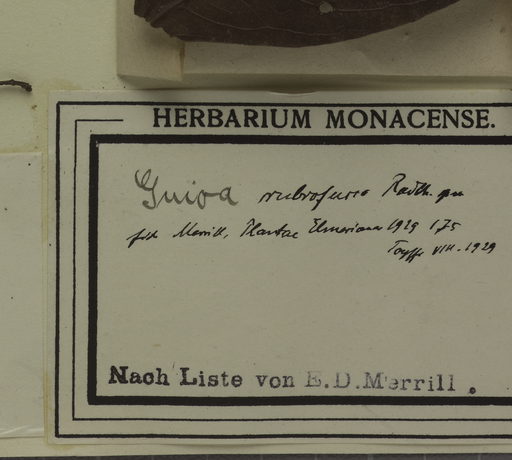 HERBARIUM MONACENSE.
Guioa rubrofusca Radlk.
Merrill, Plantae Elmerianae 1929 175
VIII. 1929
Nach Liste von E.D.Merrill .